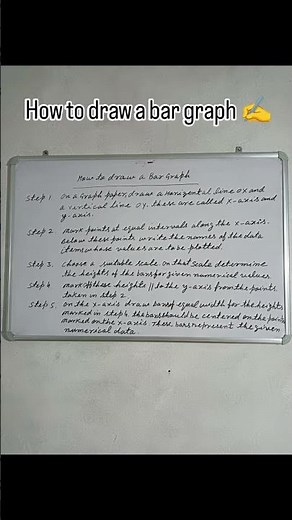 How to draw a bar graph ✍️
How to draw a Bar Graph
Step 1 on a Graph paper, draw a Horizental line OX and
a vertical line OY. these are called x-axis and
y-axis.
Step 2 mark points at equal intervals along the x-axis.
Below these points write the names of the data
items whose values are to be plotted.
Step 3. choose a suitable scale. on that scale determine
the heights of the bars for given numerical values
Step 4 mark off these heights || to the y-axis from the points
taken in step 2
Step 5 on the x-axis draw bars of equal width for the heights
marked in step 4. the bars should be centered on the points
marked on the x-axis. these bars represent the given
numerical data